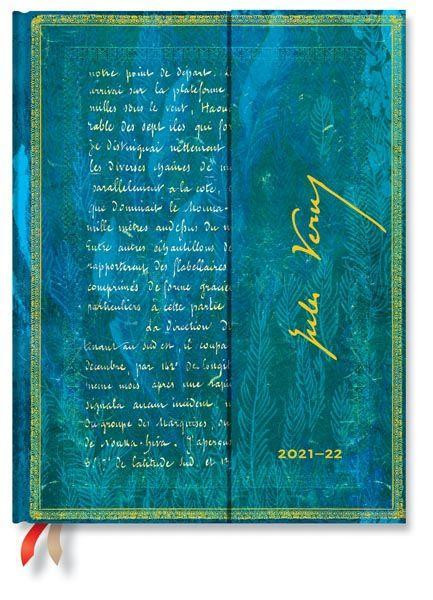 notre point de départ.
arrivai sur la plateforme
milles sous le vent, Haou
rable des sept îles qui for
Je distinguai nettement
les diverses chaînes de m
parallèlement à la côte,
que dominait le Mouna-
mille mètres au-dessus du n
entre autres échantillons de
rapportèrent des flabellaires
comprimés de forme gracie
particuliers à cette partie
La Direction D
tenant au sud-est, il coupa
décembre, par 142° de longit
même mois après une rapi
signala aucun incident,
du groupe des Marquises,
de Nouka-Hiva. J'aperçus
de latitude sud, et 13
Jules Verne
2021–22